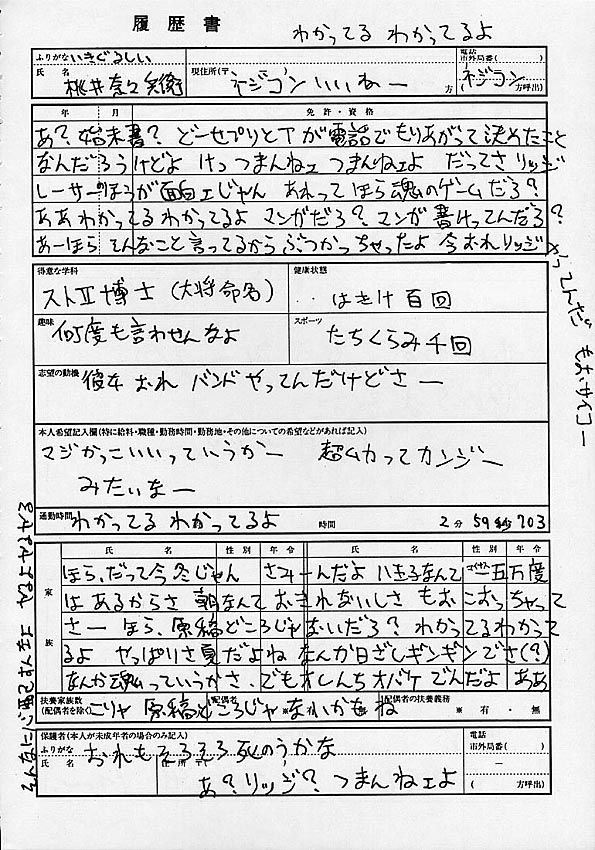 履歴書
わかってる わかってるよ
ふりがな いきぐるしい
氏名 桃井奈々
現住所(〒 ) ネジコンいいねー 方
電話 市外局番( ) ネジコン (方呼出)
年 月 免許・資格
あ?始末書? どーせプリとTが電話でもりあがって決めたこと
なんだろうけどよ けっつまんねェ つまんねェよ だってさ リッジ
レーサーのほうが面白エじゃん あれってほら魂のゲームだろ?
ああわかってるわかってるよ マンガだろ?マンガ書けってんだろ?
あーほら てんなこと言ってるからぶつかっちゃったよ 今おれリッジ
やってんだ もおサイコー
得意な学科 ストⅡ博士(大将命名)
健康状態 ‥はきけ百回
趣味 何度も言わせんなよ
スポーツ たちくらみ千回
志望の動機 彼女 おれ バンドやってんだけどさー
本人希望記入欄(特に給料・職種・勤務時間・勤務地・その他についての希望などがあれば記入)
マジかっこいいっていうかー 超ムカってカンジー
みたいなー
通勤時間 わかってる わかってるよ 時間 2分 59秒703
家族 氏名 性別 年令 氏名 性別 年令
ほら、だって今冬じゃん さみーんだよ 八王子なんて 一五万度
はあるからさ 朝なんておきれないしさ もおこおっちゃって
さー ほら、原稿どころじゃないだろ?わかってるわかって
るよ やっぱりさ夏だよね なんか日ざしギンギンでさ(?)
なんか魂っていうがさ、でもオレんちオバケでんだよ ああ
扶養家族数(配偶者を除く) 配偶者 配偶者の扶養義務
こりゃ原稿どころじゃないかもね ※ ※ 有・無
保護者(本人が未成年者の場合のみ記入)
ふりがな 氏名 おれもそろそろ死のうかな
あ?リッジ?つまんねェよ
電話 市外局番( ) ー (方呼出)